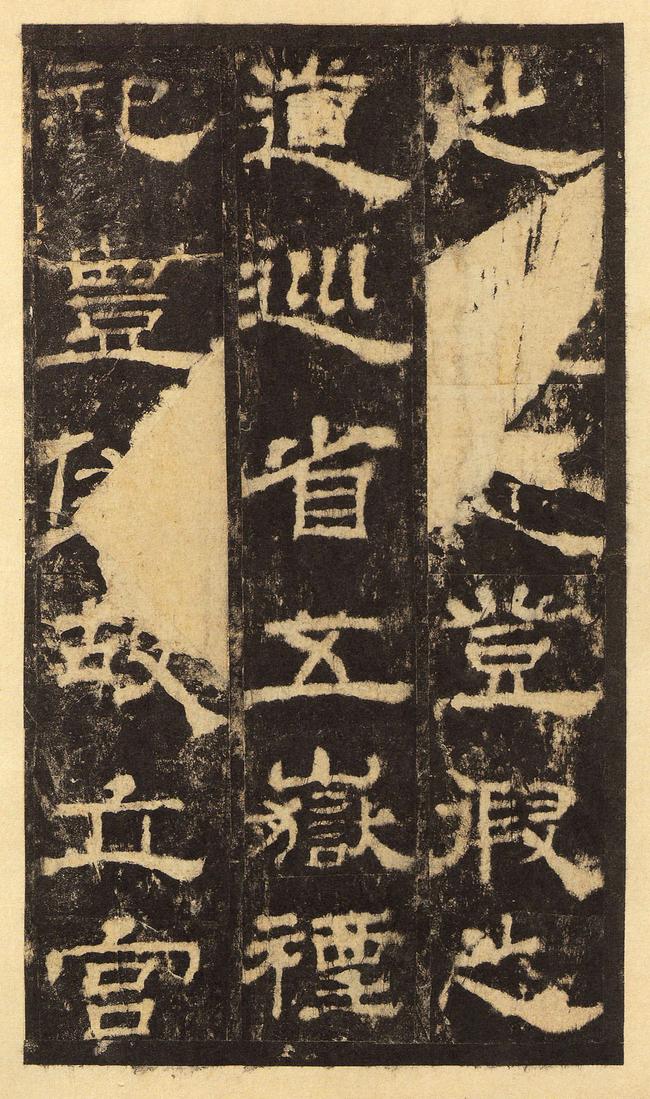 之登假之
道巡省五嶽禋
祀豐故立宮